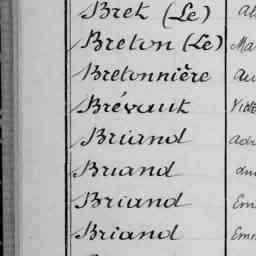 Bret (Le)
Breton (Le) Ma
Bretonnière Au
Brévaut Vict
Briand
Briand
Briand Em
Briand Em